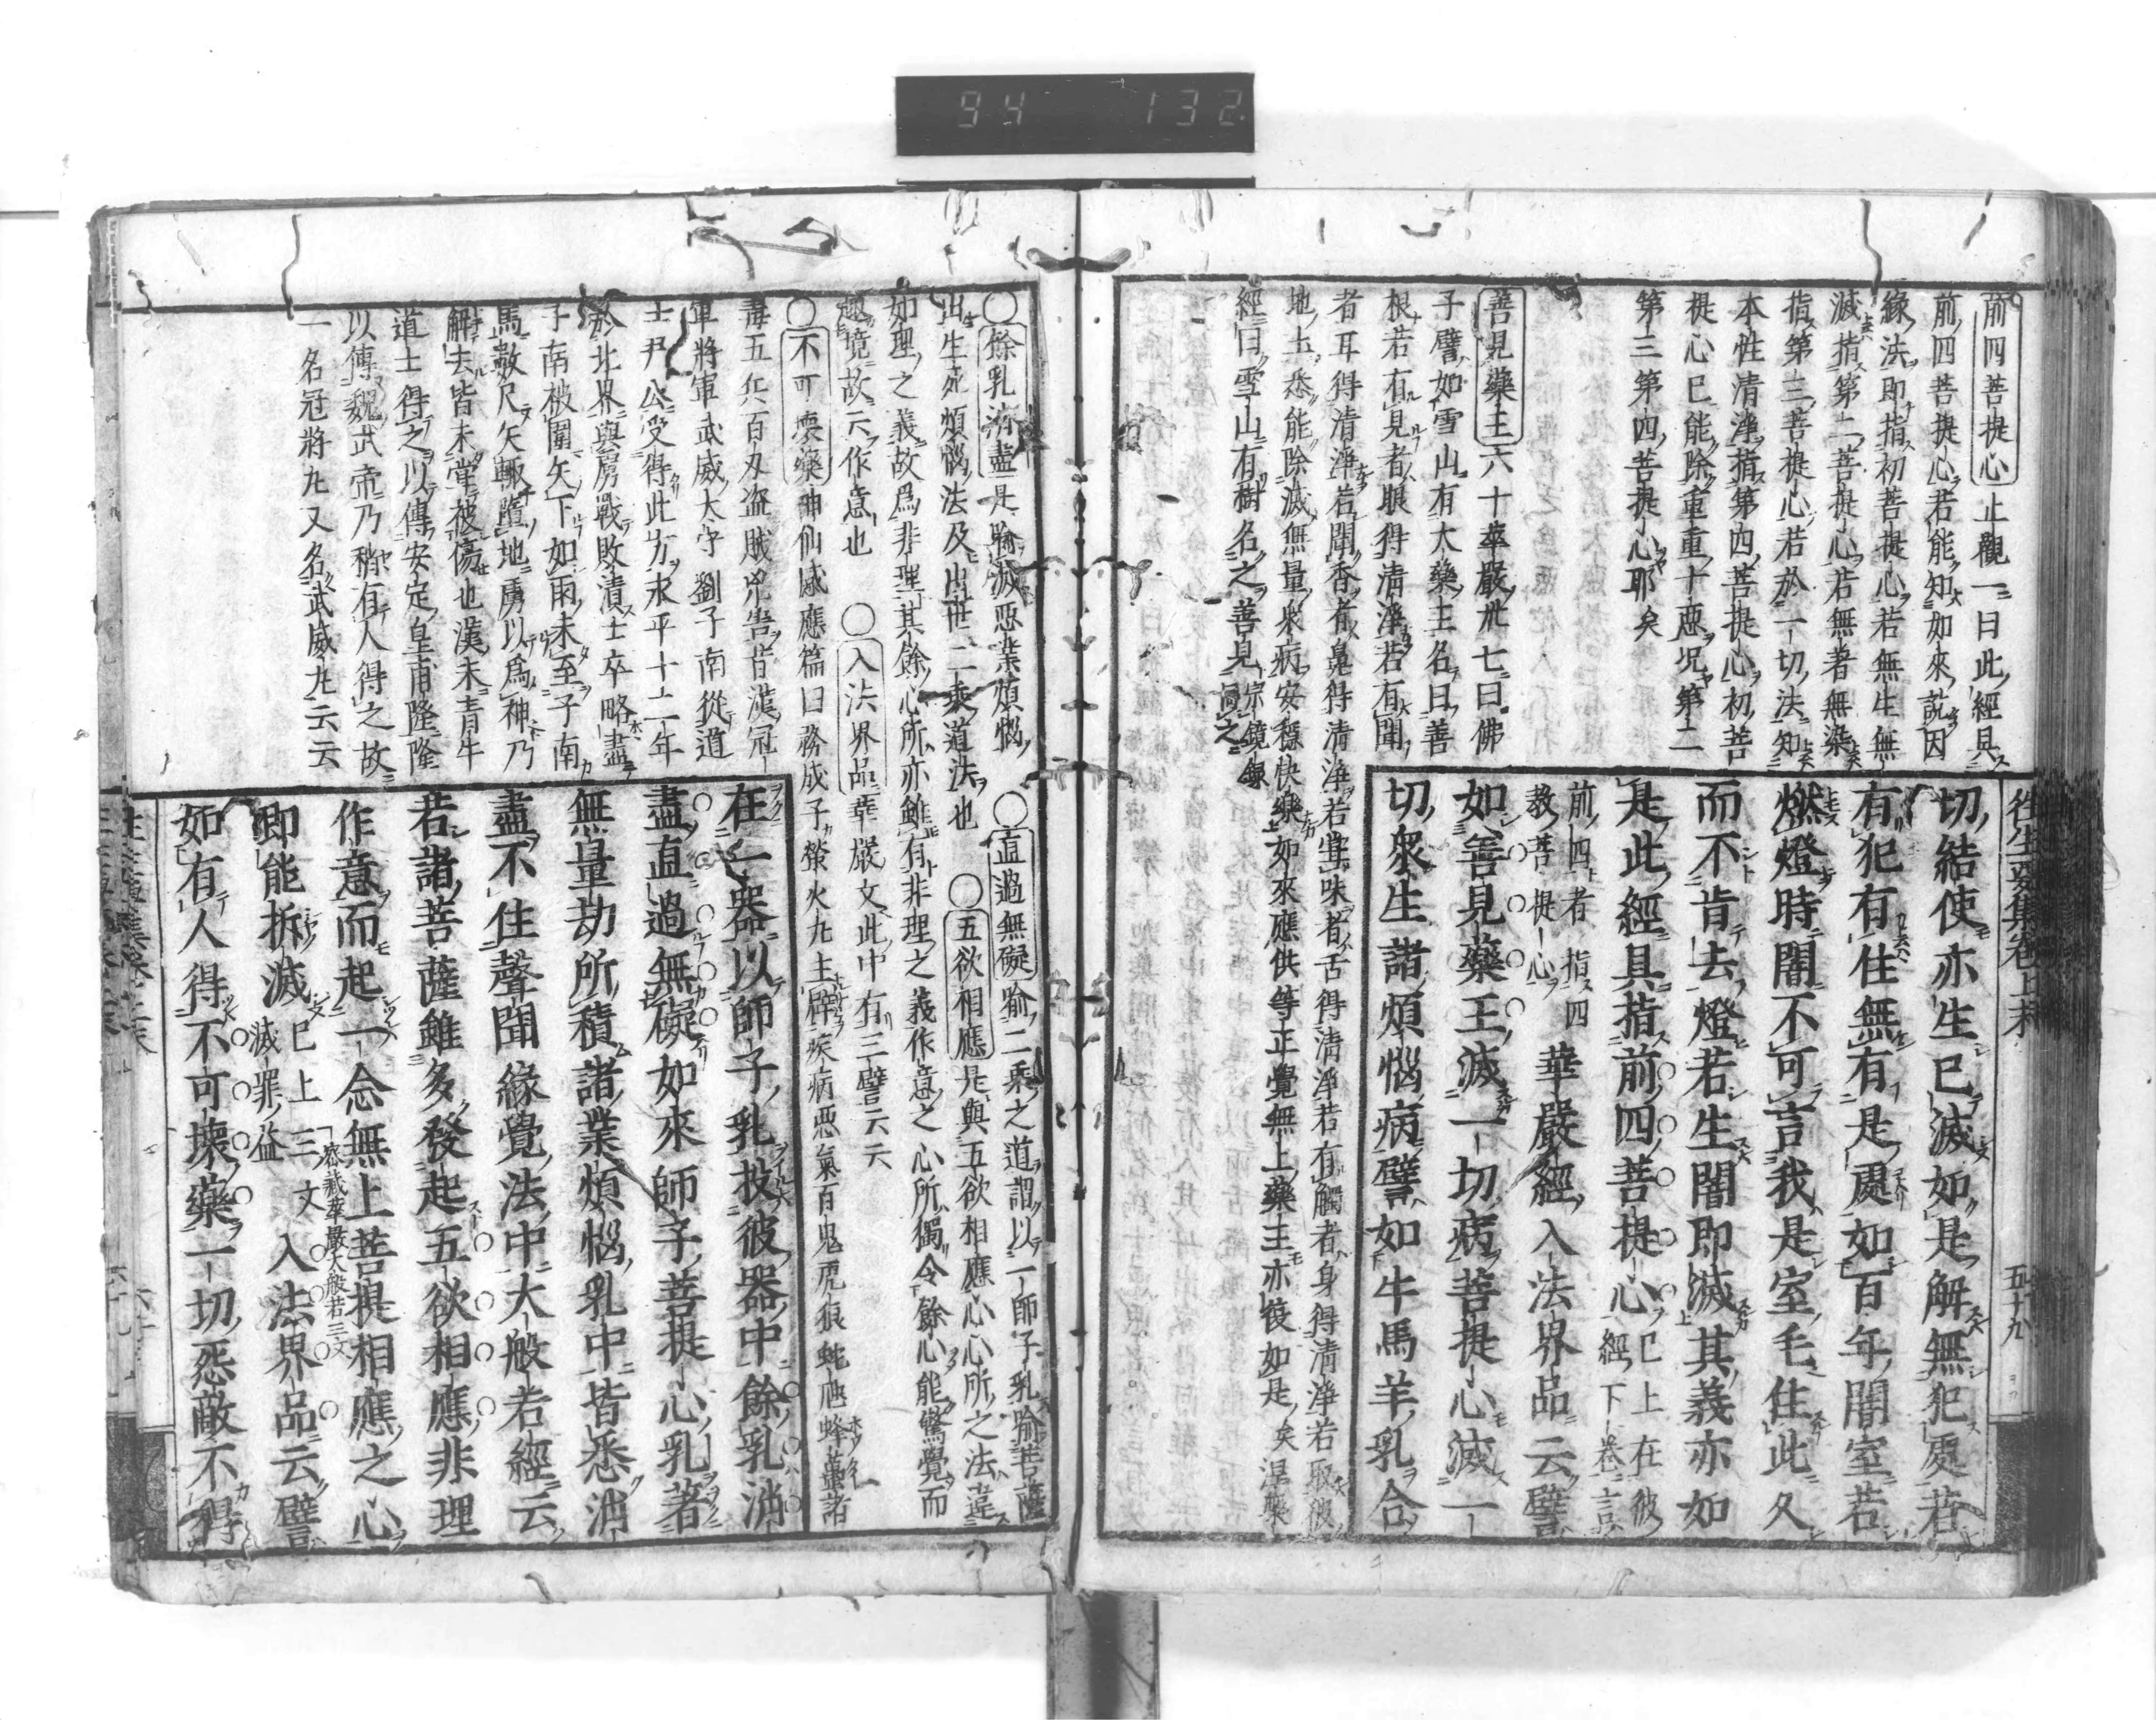 94 132
前四菩提心止觀一曰此經具
前四菩提心若能知如來說因
緣法即指初菩提心若無生無
滅指第二菩提心若無著無染
指第三菩提心若於一切法知
本性清淨指第四菩提心初菩
提心已能除重重十惡况第二
第三第四菩提心耶矣
善見藥王六十華嚴卅七曰佛
子譬如雪山有大藥王名曰善
根若有見者眼得清淨若有聞
者耳得清淨若聞香者鼻得清淨若甞味者舌得清淨若有觸者身得清淨若取彼
地土悉能除滅無量衆病安穩快樂如來應供等正覺無上藥王亦復如是矣涅槃
經曰雪山有樹名之善見宗鏡錄
往生要集卷上末 五十九
切結使亦生已滅如是解無犯處若
有犯有住無有是處如百年闇室若
燃燈時闇不可言我是室毛住此久
而不肯去燈若生闇即滅其義亦如
是此經具指前四菩提心已上在彼經下卷言
前四者指四教菩提心華嚴經入法界品云譬
如善見藥王滅一切病菩提心滅一
切衆生諸煩惱病譬如牛馬羊乳合
○餘乳消盡是喻滅惡業煩惱○直過無礙喻二乘之道謂以一師子乳喻菩薩
出生死煩惱法及出世二乘道法也○五欲相應是與五欲相應心心所之法違
如理之義故爲非理其餘心所亦雖有非理之義作意之心所獨令餘心能驚覺而
趣境故云作意也○入法界品華嚴文此中有三譬云云
○不可壞藥神仙感應篇曰務成子螢火丸主辟疾病惡氣百鬼虎狼蛇虺蜂蠆諸
毒五兵百刄盜賊凶害昔漢冠
軍將軍武威大守劉子南從道
士尹公受得此方永平十二年
於北界與虜戰敗潰士卒略盡
子南被圍矢下如雨未至子南
馬數尺矢輙墮地虜以爲神乃
解去皆未甞被傷也漢末青牛
道士得之以傳安定皇甫隆隆
以傳魏武帝乃稍有人得之故
一名冠將丸又名武威丸云云
在一器以師子乳投彼器中餘乳消
盡直過無礙如來師子菩提心乳著
無量劫所積諸業煩惱乳中皆悉消
盡不住聲聞緣覺法中大般若經云
若諸菩薩雖多發起五欲相應非理
作意而起一念無上菩提相應之心
即能折滅已上三文滅罪益入法界品云譬
如有人得不可壞藥一切怨敵不得